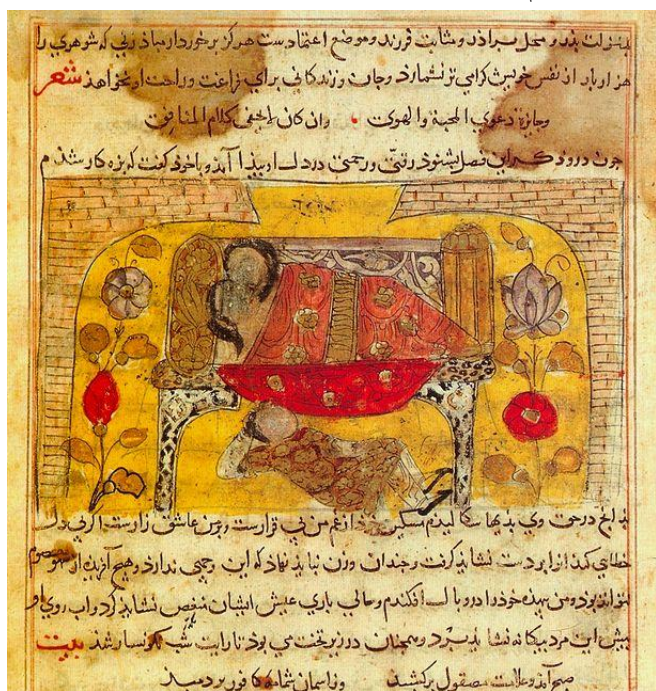 بمنزلت بدر و محل برادر و مثابت فرزند وموضع اعتمادست هرکز برخوردار مباذ زنی که شوهری را
هزار بار از نفس خویش کرامی تر نشمارد وجان وزندکانی برای فراغت وراحت او نخواهذ شعر
وجایزة دعوی المحبة والهوی وان کان لایخفی کلام المنافق
جون درودکر این فصل بشنوذ رقتی ورحمتی در دل او بیذا آمذ و با خوذ کفت که بزه کار شذم
در حق وی بدیها سکالیدم مسکین از غم من بی قرارست ودر من عاشق زارست اکر بی دل
خطای کند انرا بر دست نشاید کرفت وجندان وزن نباید نهاد که این ندارد وهیج آفریده از سهو معصوم
نتواند بود ومن بیهده خودرا در وبال افکندم وحالی باری عیش ایشان منغص نشاید کرد واب روی او
بیش این مرد بیکانه نشاید ببرد وهمجنان در زیر تخت می بوذ تا رایت شب نکونسار شذ بیت
صبح آمذ وعلامت مصقول برکشید وز اسمان شمامه کافور بردمید